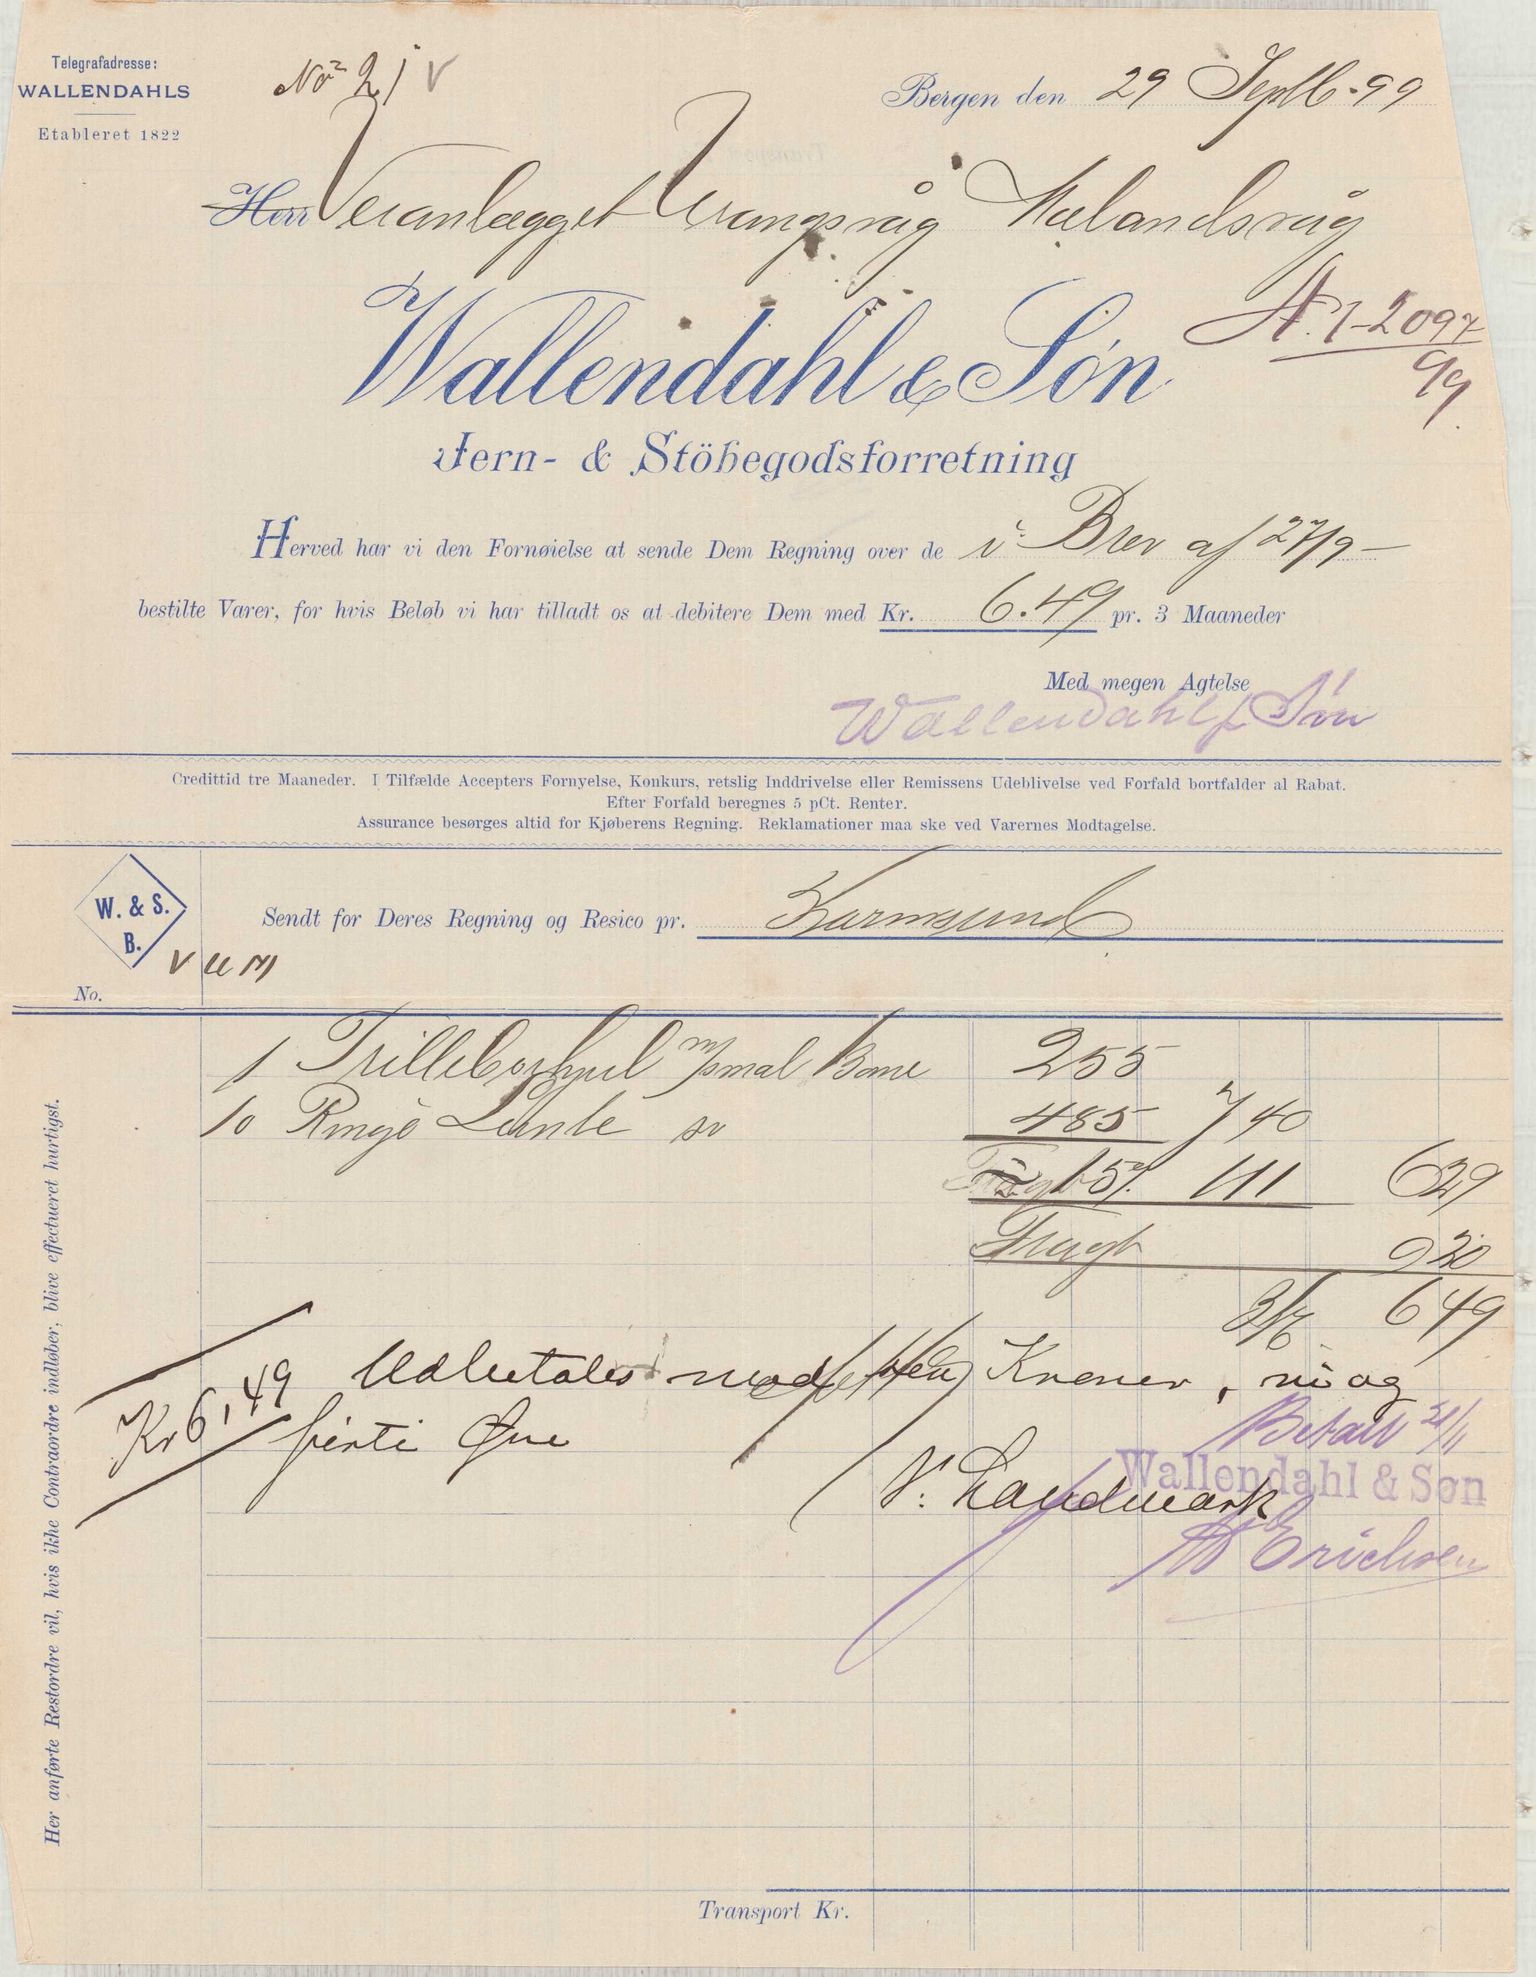 Telegrafadresse:
WALLENDAHLS
Etableret 1822
No 21 V
Bergen den 29 Septb. 99
Herr Veianlægget Vrangsvåg Mælandsvåg
A. 1-2097
99
Wallendahl & Søn
Jern- & Stöbegodsforretning
Herved har vi den Fornøielse at sende Dem Regning over de i Brev af 27/9 -
bestilte Varer, for hvis Beløb vi har tilladt os at debitere Dem med Kr. 6.49 pr. 3 Maaneder
Med megen Agtelse
Wallendahl & Søn
Credittid tre Maaneder. I Tilfælde Accepters Fornyelse, Konkurs, retslig Inddrivelse eller Remissens Udeblivelse ved Forfald bortfalder al Rabat.
Efter Forfald beregnes 5 pCt. Renter.
Assurance besørges altid for Kjøberens Regning. Reklamationer maa ske ved Varernes Modtagelse.
W. & S.
B.
Sendt for Deres Regning og Resico pr. Karmsund
No.
1 Trillebørhjul m/smal Bane 255
10 Ringe Lunte 485 7 40
15% 111 6 29
Fragt 20
6 49
Kr 6,49
Udbetales med sex Kroner, ni og
firti Øre
Betalt 21/11
Wallendahl & Søn
Landmark
Erichsen
Her anførte Restordre vil, hvis ikke Contraordre indløber, blive effectueret hurtigst.
Transport Kr.